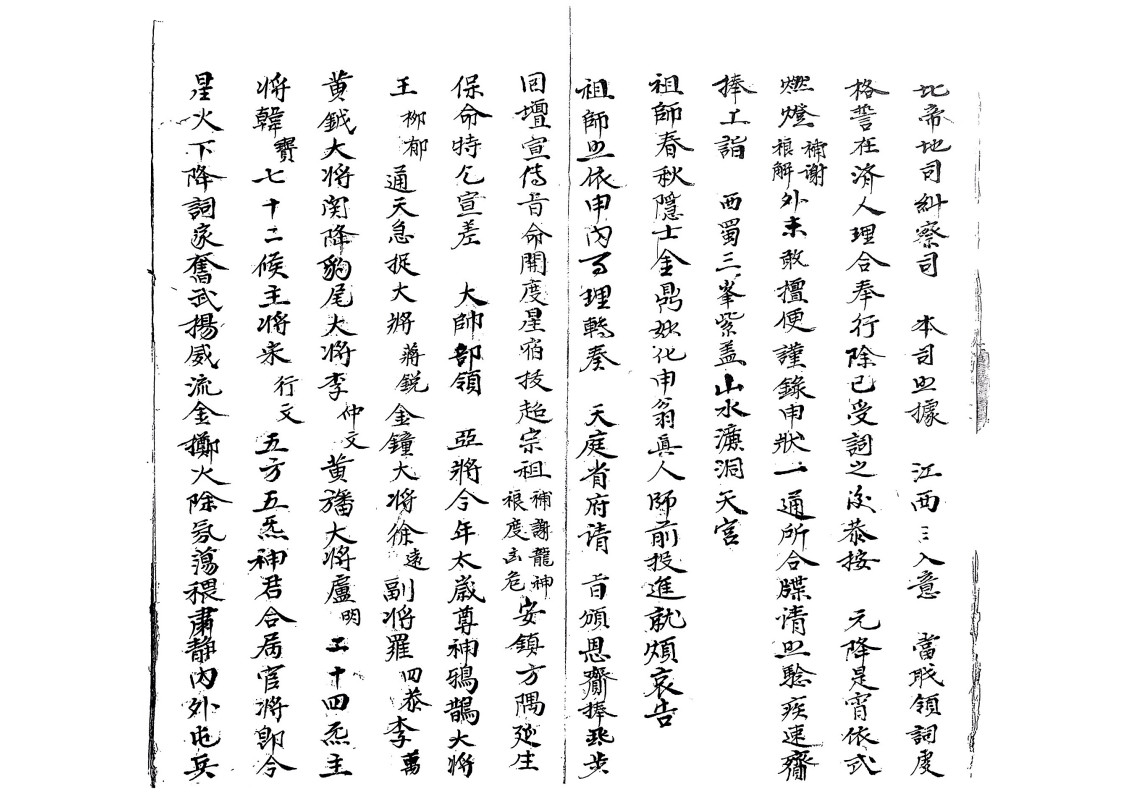 北帝地司糾察司　本司照據　江西三入意　當職領詞虔
格誓在済人理合奉行除已受詞之后恭按　元降是宵依式
燃燈補謝禳解外未敢擅便謹錄申狀一通所合牒情照驗疾速齎
捧工詣　西蜀三峯紫盖山水濂洞天宮
祖師春秋隱士金鼎妙化申翁真人師前投進就煩哀告
祖師照依申內事理轉奏　天庭省府请　旨頒恩齎捧飛步
回壇宣傳旨命開度星宿拔超宗祖補謝龍神禳度凶危安鎮方隅延生
保命特乞宣差　大帥部領　亞將今年太歲尊神鴉鵲大將
王柳郁通天急捉大將蔣銳金鐘大将徐遠副将羅四恭李萬
黄鉞大将関降豹尾大将李仲文黄旛大将盧明工十四炁主
将韓寶七十二候主将朱行文五方五炁神君合属官将即令
星火下降詞家奮武揚威流金擲火除氛蕩穢肅静内外屯兵